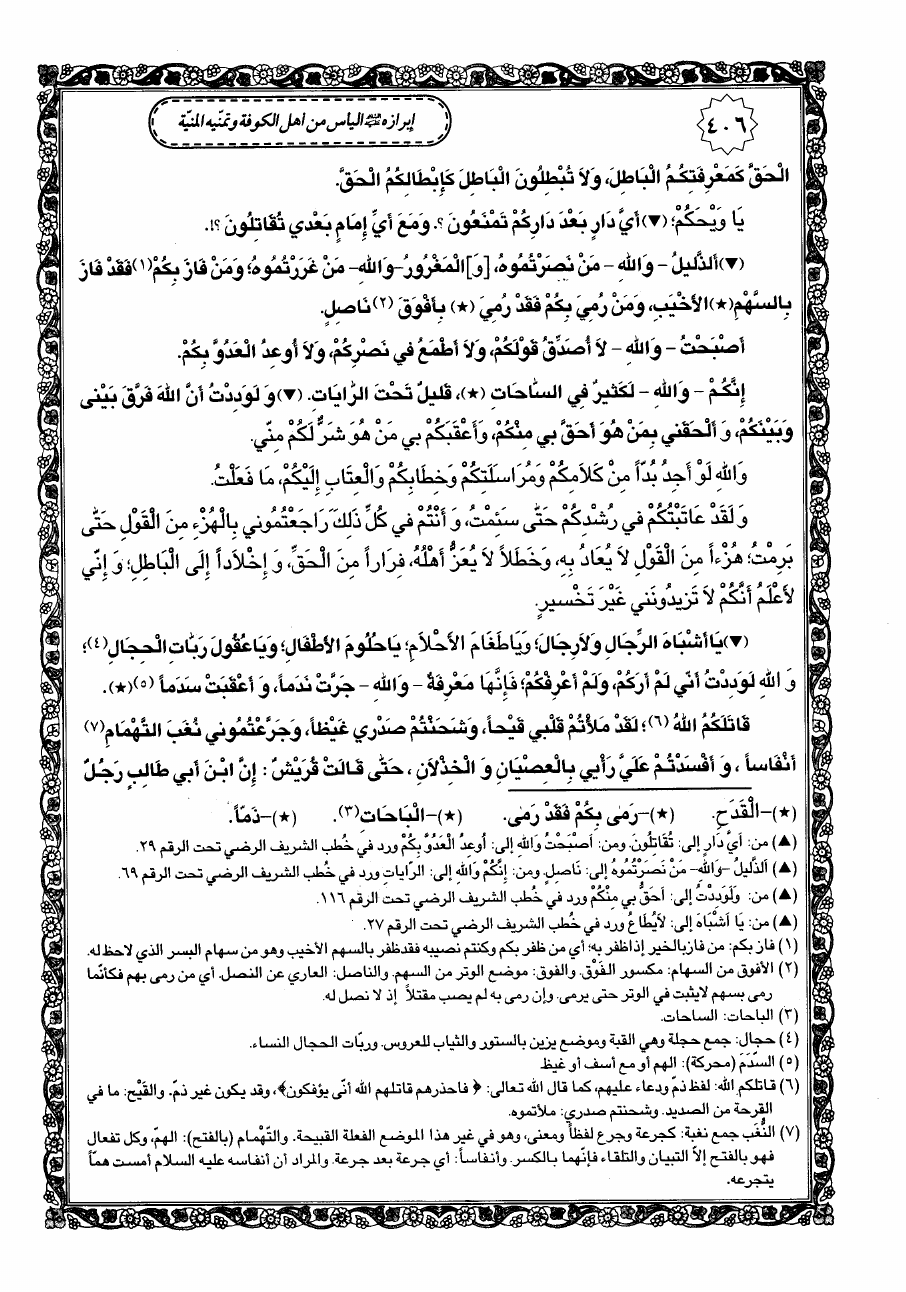 ٤٠٦
إبرازه اليأس من أهل الكوفة وتمنّيه المنيّة
الْحَقَّ كَمَعْرِفَتِكُمُ الْبَاطِلَ، وَلاَ تُبْطِلُونَ الْبَاطِلَ كَإِبْطَالِكُمُ الْحَقَّ.
يَا وَيْحَكُمْ؛ (▼) أَيَّ دَارٍ بَعْدَ دَارِكُمْ تَمْنَعُونَ ؟. وَمَعَ أَيِّ إِمَامٍ بَعْدي تُقَاتِلُونَ ؟!.
(▼) أَلذَّليلُ – وَاللهِ – مَنْ نَصَرْتُمُوهُ، [وَ] الْمَغْرُورُ–وَاللهِ– مَنْ غَرَرْتُمُوهُ؛ وَمَنْ فَازَ بِكُمْ(١) فَقَدْ فَازَ
بِالسَّهْمِ(★) الأَخْيَبِ، وَمَنْ رُمِيَ بِكُمْ فَقَدْ رُمِيَ (★) بِأَفْوَقَ (٢) نَاصِلٍ.
أَصْبَحْتُ – وَاللهِ – لاَ أُصَدِّقُ قَوْلَكُمْ، وَلاَ أَطْمَعُ في نَصْرِكُمْ، وَلاَ أُوعِدُ الْعَدُوَّ بِكُمْ.
إِنَّكُمْ – وَاللهِ – لَكَثيرٌ فِي السَّاحَاتِ (★)، قَليلٌ تَحْتَ الرَّايَاتِ. (▼) وَ لَوَدِدْتُ أَنَّ اللهَ فَرَّقَ بَيْنى
وَبَيْنَكُمْ، وَ أَلْحَقَني بِمَنْ هُوَ أَحَقُّ بي مِنْكُمْ، وَأَعْقَبَكُمْ بي مَنْ هُوَ شَرٌّ لَكُمْ مِنّي.
وَاللهِ لَوْ أَجِدُ بُدّاً مِنْ كَلاَمِكُمْ وَمُرَاسَلَتِكُمْ وَخِطَابِكُمْ وَالْعِتَابِ إِلَيْكُمْ، مَا فَعَلْتُ.
وَ لَقَدْ عَاتَبْتُكُمْ في رُشْدِكُمْ حَتّى سَئِمْتُ، وَ أَنْتُمْ في كُلِّ ذَلِكَ رَاجَعْتُمُوني بِالْهُزْءِ مِنَ الْقَوْلِ حَتّى
بَرِمْتُ؛ هُزْءاً مِنَ الْقَوْلِ لاَ يُعَادُ بِهِ، وَخَطَلاً لاَ يُعَزُّ أَهْلُهُ، فِرَاراً مِنَ الْحَقِّ، وَ إِخْلاَداً إِلَى الْبَاطِلِ؛ وَ إِنّي
لأَعْلَمُ أَنَّكُمْ لاَ تَزيدُونَني غَيْرَ تَخْسيرٍ.
(▼) يَا أَشْبَاهَ الرِّجَالِ وَلاَ رِجَالَ؛ وَيَا طَغَامَ الأَحْلاَمِ؛ يَا حُلُومَ الأَطْفَالِ؛ وَيَا عُقُولَ رَبَّاتِ الْحِجَالِ(٤)؛
وَ اللهِ لَوَدِدْتُ أَنّي لَمْ أَرَكُمْ، وَلَمْ أَعْرِفْكُمْ؛ فَإِنَّهَا مَعْرِفَةٌ – وَاللهِ – جَرَّتْ نَدَماً، وَ أَعْقَبَتْ سَدَماً (٥)(★).
قَاتَلَكُمُ اللهُ (٦)؛ لَقَدْ مَلأْتُمْ قَلْبي قَيْحاً، وَشَحَنْتُمْ صَدْري غَيْظاً، وَجَرَّعْتُمُوني نُغَبَ التَّهْمَامِ(٧)
أَنْفَاساً ، وَ أَفْسَدْتُمْ عَلَيَّ رَأْيي بِالْعِصْيَانِ وَ الْخِذْلاَنِ ، حَتّى قَالَتْ قُرَيْشٌ : إِنَّ ابْنَ أَبي طَالِبٍ رَجُلٌ
(★)–الْقَدَحِ. (★)–رَمى بِكُمْ فَقَدْ رَمى. (★)–الْبَاحَاتِ(٣). (★)–ذَمّاً.
(▲) من: أَيَّ دَارٍ إلى: تُقَاتِلُونَ. ومن: أَصْبَحْتُ وَاللهِ إلى: أُوعِدُ الْعَدُوَّ بِكُمْ ورد في خُطب الشريف الرضي تحت الرقم ٢٩.
(▲) اَلذَّليلُ –وَاللهِ– مَنْ نَصَرْتُمُوهُ إلى: نَاصِلٍ. ومن: إِنَّكُمْ وَاللهِ إلى: الرَّايَاتِ ورد في خُطب الشريف الرضي تحت الرقم ٦٩.
(▲) من: وَلَوَدِدْتُ إلى: أَحَقُّ بي مِنْكُمْ ورد في خُطب الشريف الرضي تحت الرقم ١١٦.
(▲) من: يَا أَشْبَاهَ إلى: لاَيُطَاعُ ورد في خُطب الشريف الرضي تحت الرقم ٢٧.
(١) فاز بكم: من فاز بالخير إذا ظفر به؛ أي من ظفر بكم وكنتم نصيبه فقد ظفر بالسهم الأخيب وهو من سهام اليسر الذي لا حظ له.
(٢) الأفوق من السهام: مكسور الفَوْق. والفوق: موضع الوتر من السهم. والناصل: العاري عن النصل. أي من رمى بهم فكأنّما
رمى بسهم لايثبت في الوتر حتى يرمى. وإن رمى به لم يصب مقتلاً إذ لا نصل له.
(٣) الباحات: الساحات.
(٤) حجال: جمع حجلة وهي القبة وموضع يزين بالستور والثياب للعروس. وربّات الحجال النساء.
(٥) السدَمَ (محركة): الهم أو مع أسف أو غيظ
(٦) قاتلكم الله: لفظ ذمّ ودعاء عليهم، كما قال الله تعالى: ﴿ فاحذرهم قاتلهم الله أنّى يؤفكون﴾، وقد يكون غير ذمّ. والقَيْح: ما في
القرحة من الصديد. وشحنتم صدري: ملأتموه.
(٧) النُّغَب جمع نغبة: كجرعة وجرع لفظاً ومعنى، وهو في غير هذا الموضع الفعلة القبيحة. والتَّهْمام (بالفتح): الهمّ، وكل تفعال
فهو بالفتح إلاّ التبيان والتلقاء فإنّهما بالكسر. وأنفاساً: أي جرعة بعد جرعة. والمراد أن أنفاسه عليه السلام أمست همّاً
يتجرعه.